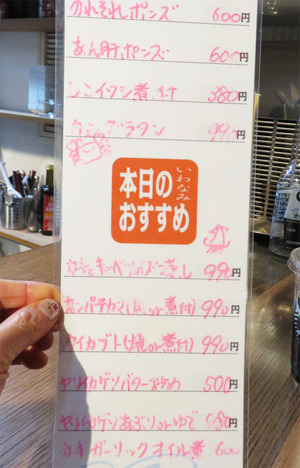 のれそれポンズ 600円
あん肝ポンズ 600円
シコイワシ煮付 380円
カニグラタン 990円
いわなみ
本日の
おすすめ
蒸し 990円
カンパチカマ(焼or煮付) 990円
タイカブト(焼or煮付) 990円
ヤリイカゲソバター炒め 500円
ヤリイカゲソあぶりorゆで 480円
カキガーリックオイル煮 600